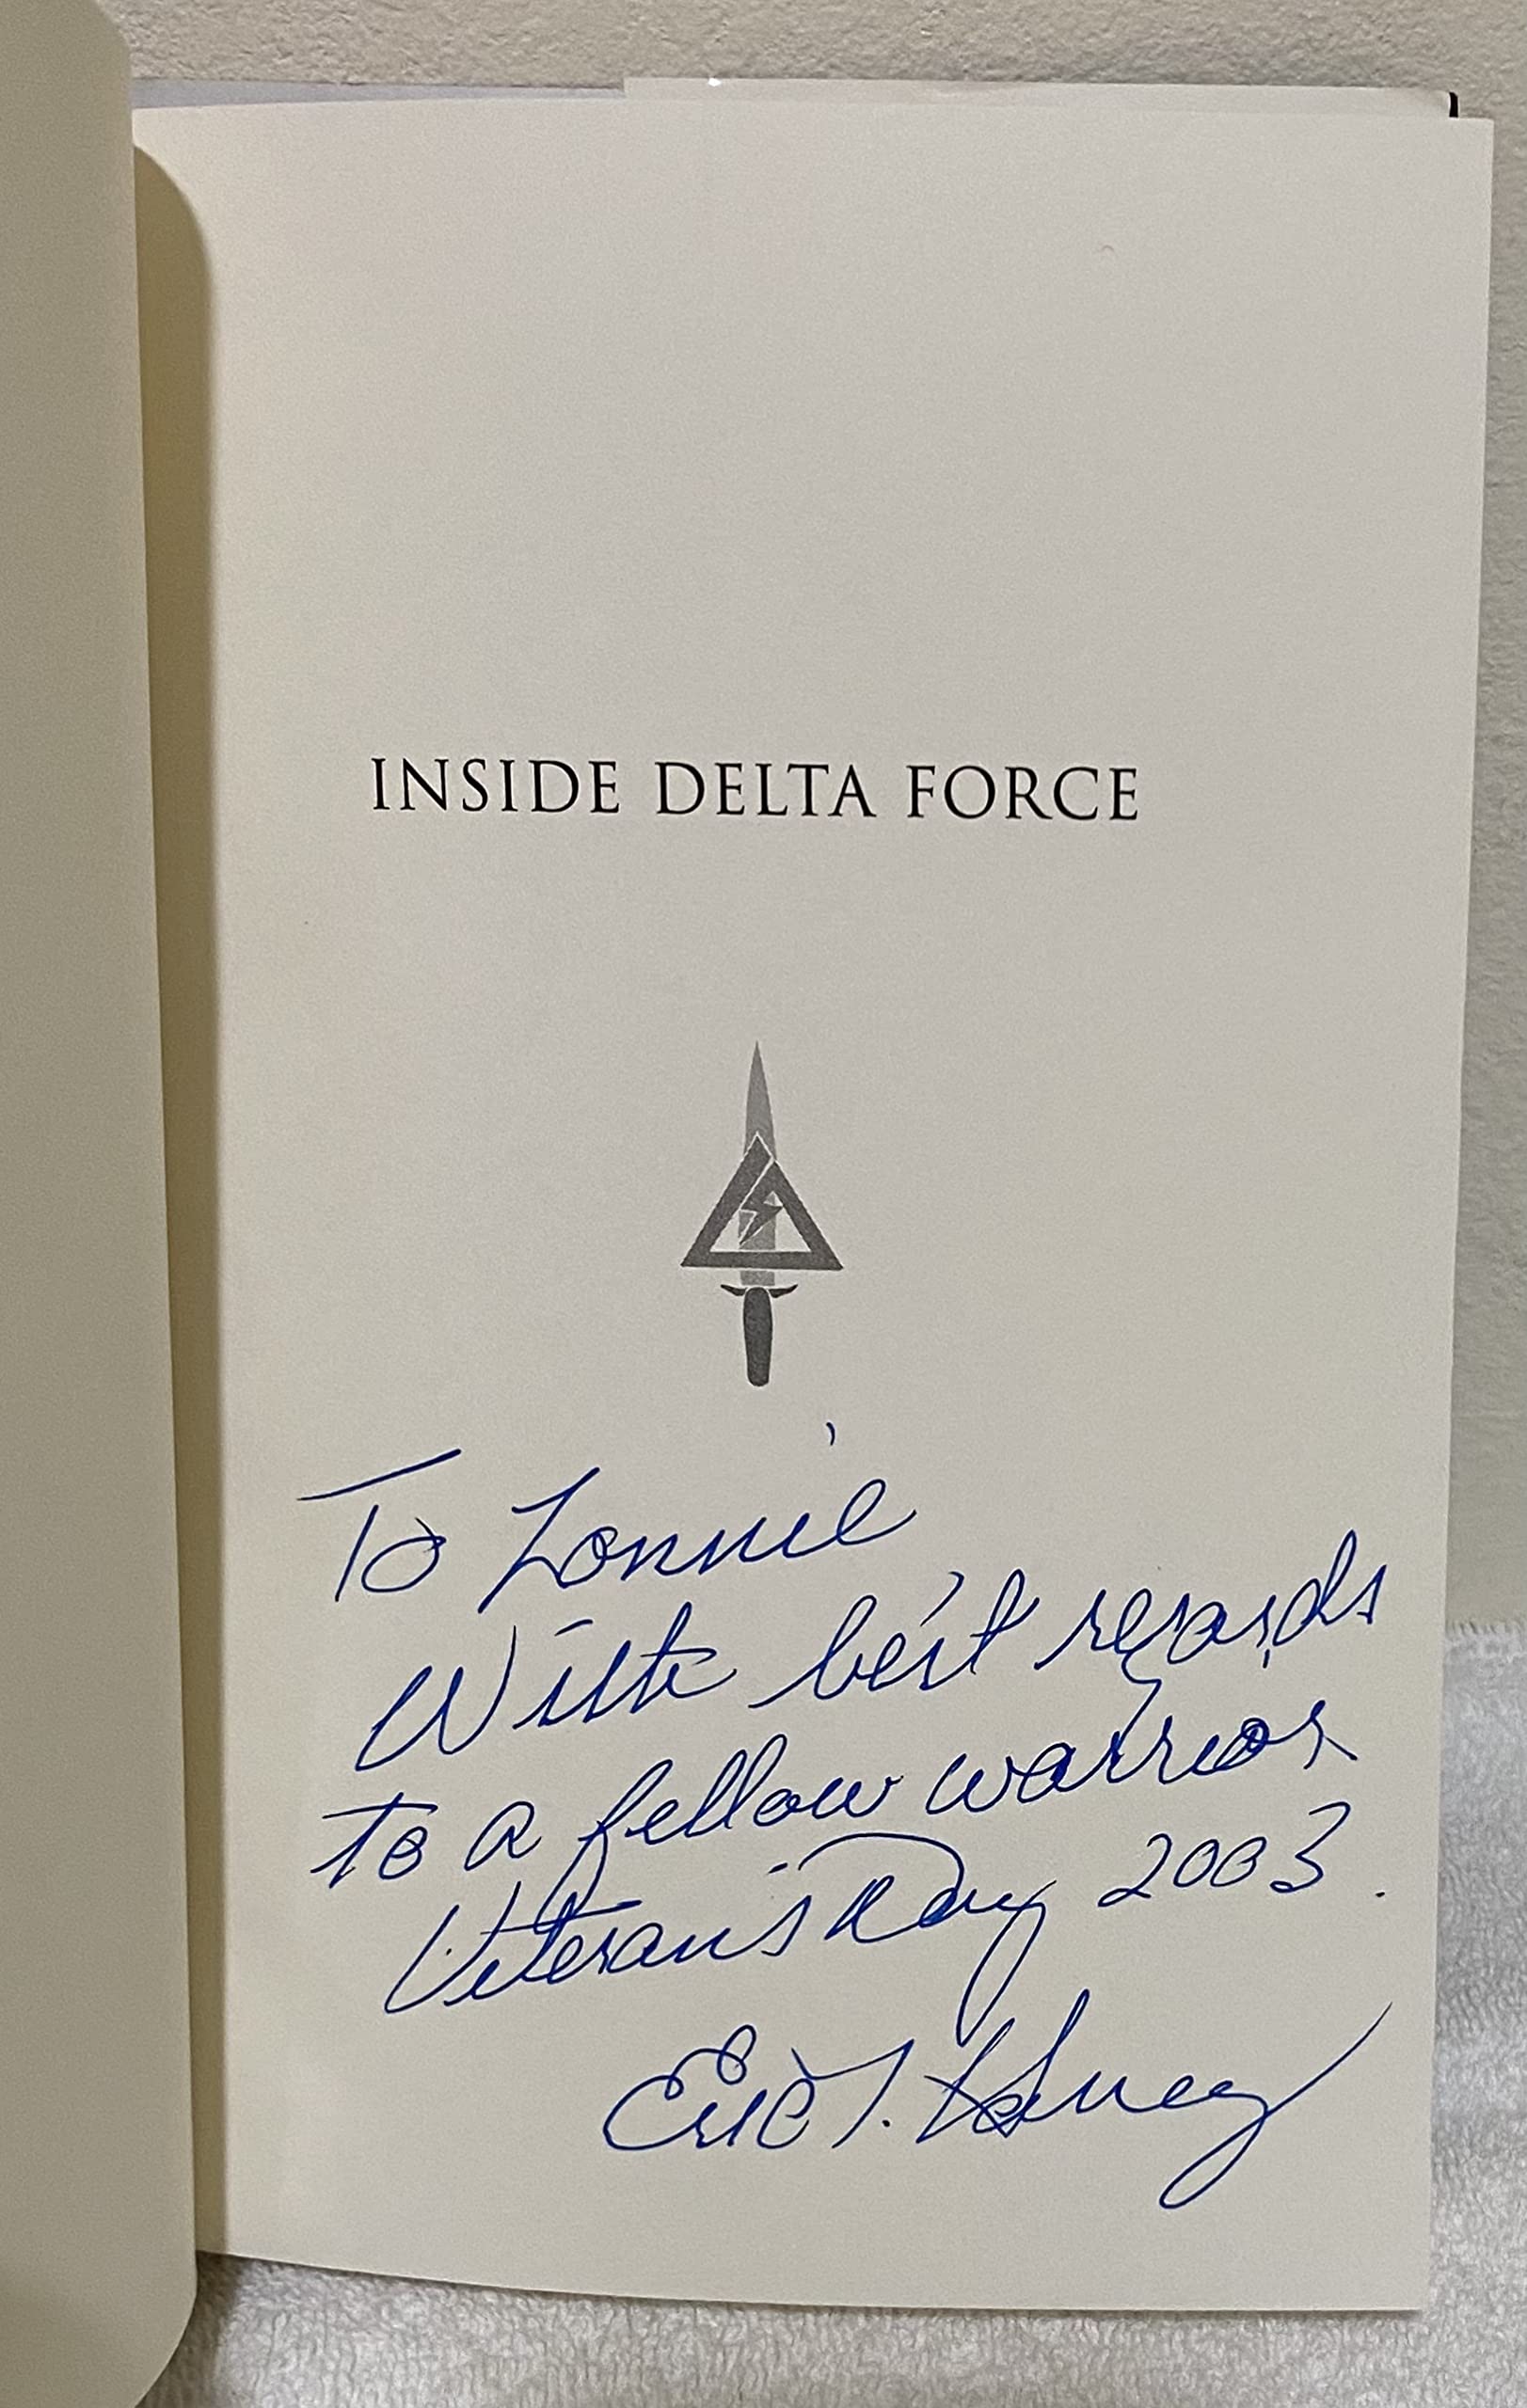 INSIDE DELTA FORCE
To Lonnie
With best regards
to a fellow warrior
Veteran's Day 2003.
Eric L. Haney